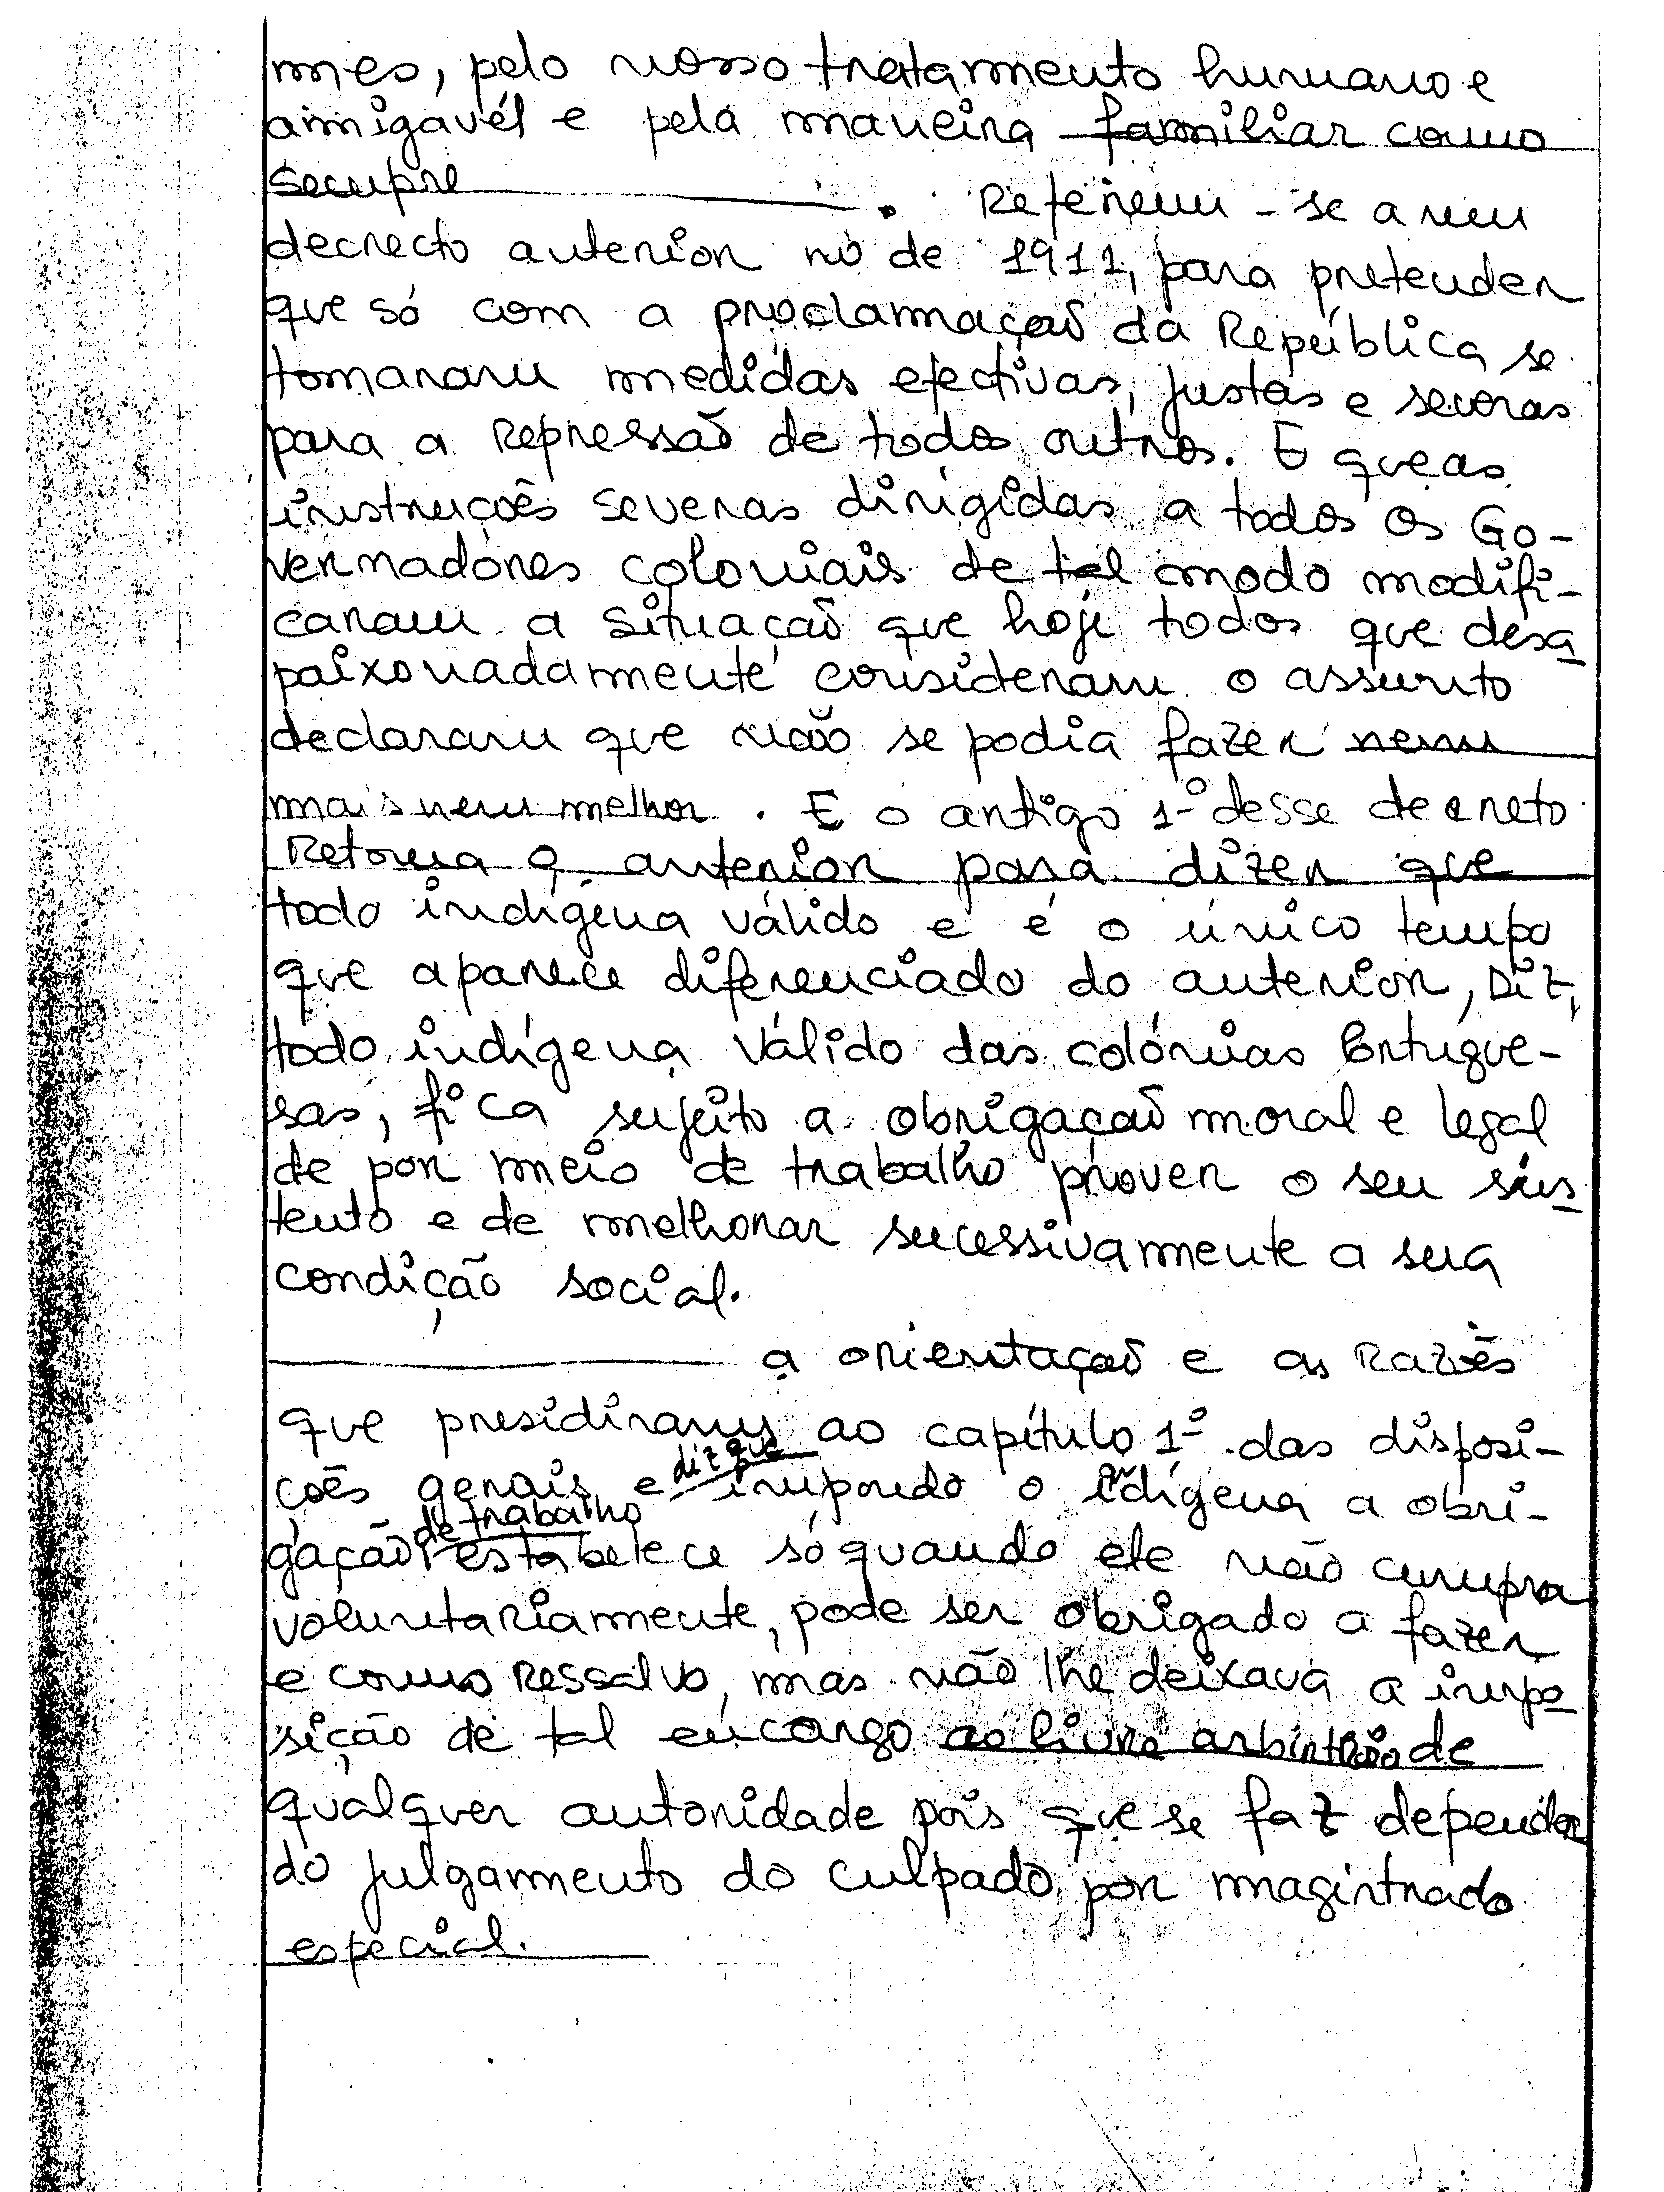 mes, pelo nosso tratamento humano e
amigavél e pela maneira familiar como
sempre . Referem-se a um
decrecto anterior no de 1911, para pretender
que só com a proclamaçaõ da República se
tomaram medidas efectivas, justas e severas
para a repressaõ de todos outros. E que as
instruçoẽs severas dirigidas a todos os Go-
vernadores coloniais de tal modo modifi-
caram a situaçaõ que hoje todos que desa
paixonadamente consideram o assunto
declararam que não se podia fazer nem
mais nem melhor. E o antigo 1º desse decreto
Retoma o anterior para dizer que
todo indígena válido e é o único tempo
que aparece diferenciado do anterior, Diz,
todo indígena válido das colónias Portugue-
sas, fica sujeito a obrigaçaõ moral e legal
de por meio de trabalho prover o seu sus
tento e de melhorar sucessivamente a sua
condição social.
a orientaçaõ e as Razoẽs
que presidiram ao capítulo 1º das disposi-
çoẽs gerais e diz que impondo o indígena a obri-
gação de trabalho estabelece só quando ele não cumpra
voluntariamente, pode ser obrigado a fazer
e como Ressalvo, mas não lhe deixava a impo
sição de tal encargo ao livre arbintrio de
qualquer autoridade pois que se faz depender
do julgamento do culpado por magistrado
especial.